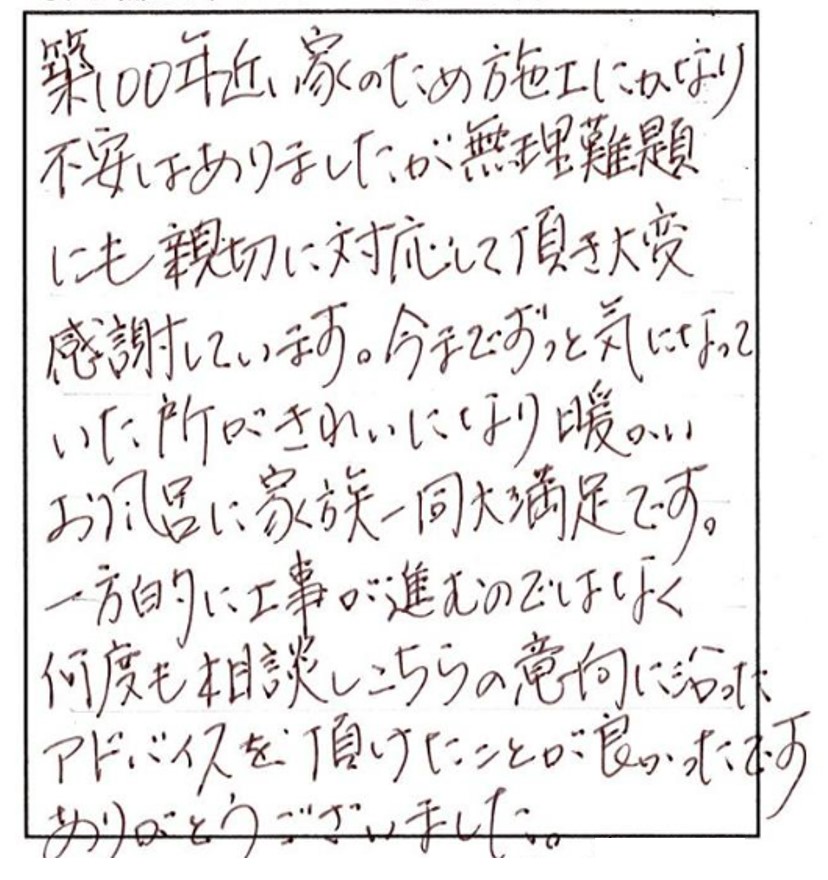 築100年近い家のため施工にかなり
不安はありましたが無理難題
にも親切に対応して頂き大変
感謝しています。今までずっと気になって
いた所がきれいになり暖かい
お風呂に家族一同大満足です。
一方的に工事が進むのではなく
何度も相談しこちらの意向に沿った
アドバイスを頂けたことが良かったです
ありがとうございました。